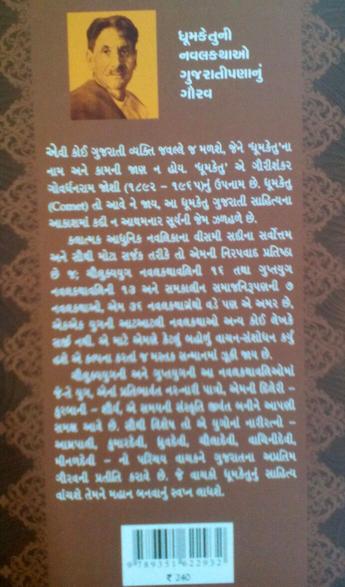 ધૂમકેતુની
નવલકથાઓ
ગુજરાતીપણાનું
ગૌરવ
એવી કોઈ ગુજરાતી વ્યક્તિ જવલ્લે જ મળશે, જેને ‘ધૂમકેતુ’ના
નામ અને કામની જાણ ન હોય. ‘ધૂમકેતુ’ એ ગૌરીશંકર
ગોવર્ધનરામ જોશી (૧૮૯૨ – ૧૯૬૫)નું ઉપનામ છે. ધૂમકેતુ
(Comet) તો આવે ને જાય, આ ધૂમકેતુ ગુજરાતી સાહિત્યના
આકાશમાં કદી ન આથમનાર સૂર્યની જેમ ઝળહળે છે.
કલાત્મક આધુનિક નવલિકાના વીસમી સદીના સર્વોત્તમ
અને સૌથી મોટા સર્જક તરીકે તો એમની નિરપવાદ પ્રતિષ્ઠા
છે જ; ચૌલુક્યયુગ નવલકથાવલિની ૧૬ તથા ગુપ્તયુગ
નવલકથાવલિની ૧૩ અને સમકાલીન સમાજનિરૂપણની ૭
નવલકથાઓ, એમ ૩૬ નવલકથાગ્રંથો વડે પણ એ અમર છે.
એકએક યુગની આટઆટલી નવલકથાઓ અન્ય કોઈ લેખકે
સર્જી નથી. એ માટે એમણે કેટલું બહોળું વાચન-સંશોધન કર્યું
હશે એ કલ્પના કરતાં જ મસ્તક સન્માનમાં ઝૂકી જાય છે.
ચૌલુક્યયુગની અને ગુપ્તયુગની આ નવલકથાવલિઓમાં
જે-તે યુગ, એનાં પ્રતિભાવંત નરનારી પાત્રો, એમની દિલેરી –
કુરબાની – શૌર્ય, એ સમયની સંસ્કૃતિ જીવંત બનીને આપણી
સમક્ષ આવે છે. સૌથી વિશેષ તો એ યુગોનાં નારીરત્નો –
આમ્રપાલી, કુમારદેવી, ધ્રુવદેવી, ચૌલાદેવી, વાચિનીદેવી,
મીનળદેવી – નો પરિચય વાચકને ગુજરાતના અપ્રતિમ
ગૌરવની પ્રતીતિ કરાવે છે. જે વાચકો ધૂમકેતુનું સાહિત્ય
વાંચશે તેમને મહાન બનવાનું સ્વપ્ન લાધશે.
9 789351 622932
₹ 240